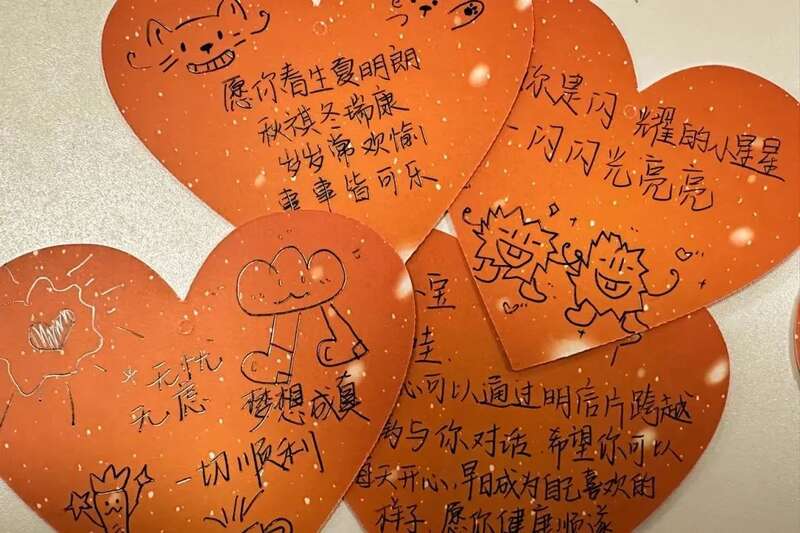 愿你春生夏明朗
秋祺冬瑞康
岁岁常欢愉
事事皆可乐
你是闪耀的小星星
一闪闪光亮亮
无忧
无愿
梦想成真
一切顺利
宝
可以通过明信片跨越
与你对话.希望你可以
天开心,早日成为自己喜欢的
样子,愿你健康顺遂